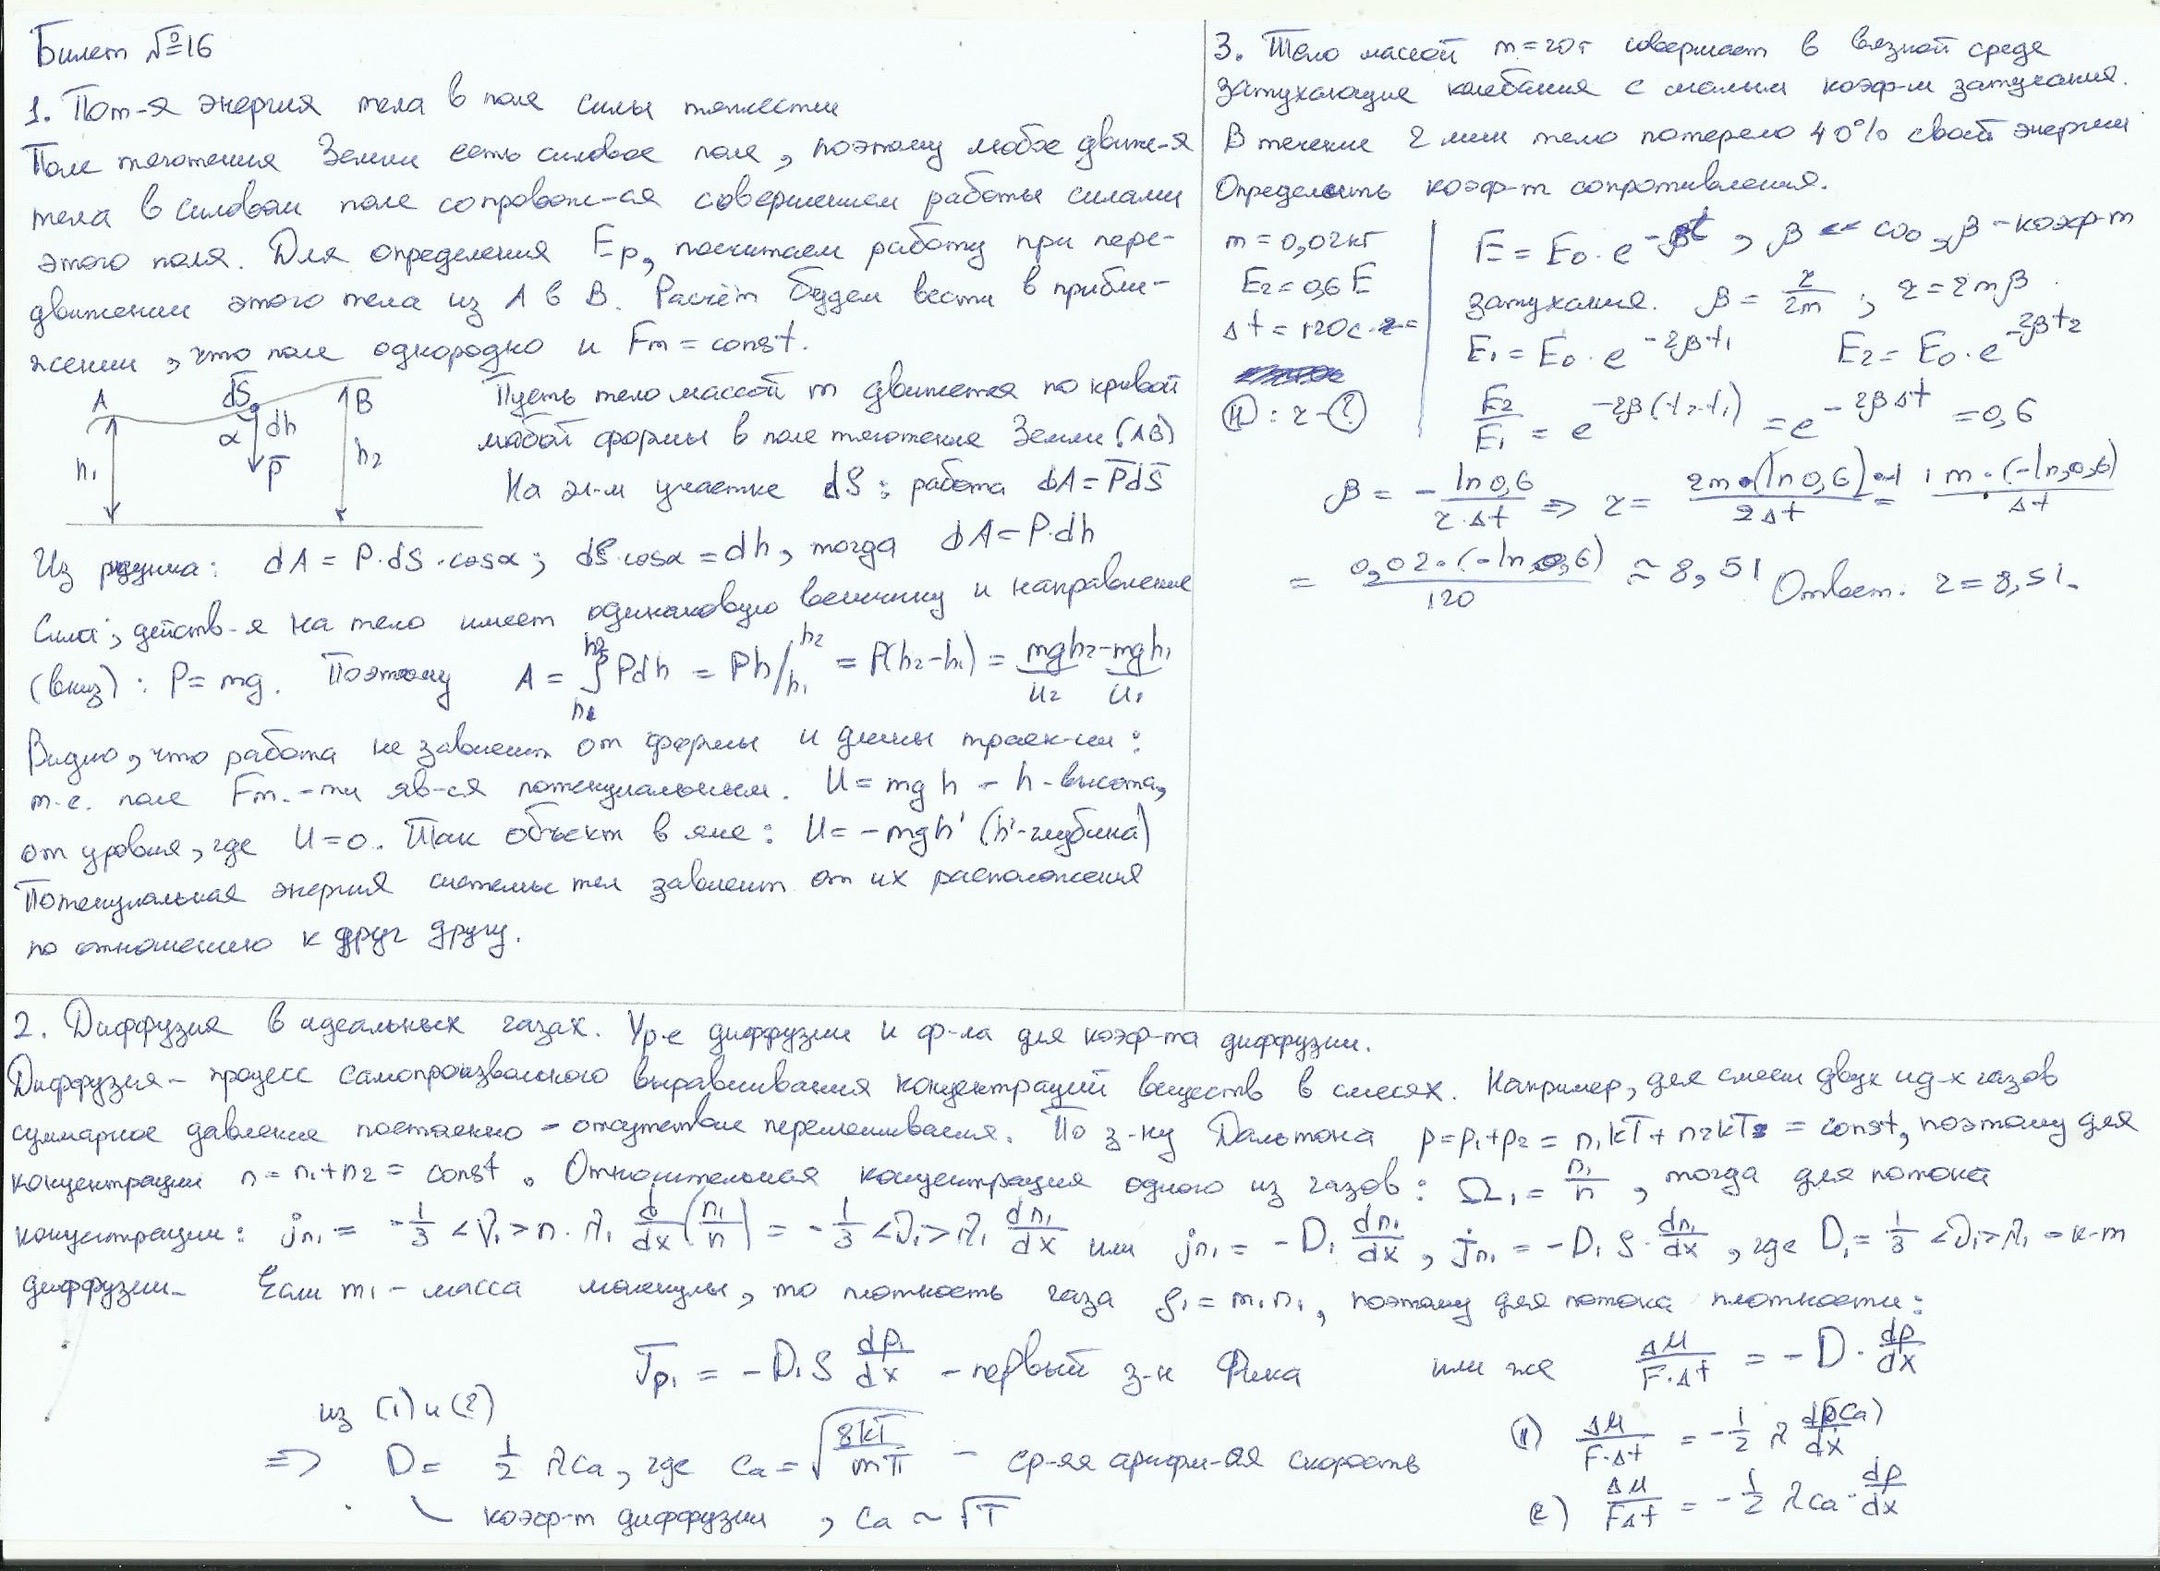 Билет №16
1. Пот-я энергия тела в поле силы тяжести
Поле тяготения Земли есть силовое поле, поэтому любое движ-я
тела в силовом поле сопровож-ся совершением работы силами
этого поля. Для определения Ep, посчитаем работу при пере-
движении этого тела из A в B. Расчёт будем вести в прибли-
жении, что поле однородно и Fт = const.
A dS B
α dh
h₁ P̄ h₂
Пусть тело массой m движется по кривой
любой формы в поле тяготения Земли (AB)
На эл-м участке dS: работа dA = P̄dS̄
Из рисунка: dA = P·dS·cosα; dS·cosα = dh, тогда dA = P·dh
Сила, действ-я на тело имеет одинаковую величину и направление
(вниз): P = mg. Поэтому A = ∫ₕ₁ʰ² Pdh = Ph/ₕ₁ʰ² = P(h₂-h₁) = mgh₂ - mgh₁
U₂ U₁
Видно, что работа не зависит от формы и длины траек-ии:
т.е. поле Fт.-ти яв-ся потенциальным. U = mgh - h - высота,
от уровня, где U = 0. Так объект в яме: U = -mgh' (h'-глубина)
Потенциальная энергия системы тел зависит от их расположения
по отношению к друг другу.
3. Тело массой m = 20г совершает в вязкой среде
затухающие колебания с малым коэф-м затухания.
В течение 2 мин тело потеряло 40% своей энергии
Определить коэф-т сопротивления.
m = 0,02кг
E₂ = 0,6 E
Δt = 120с
Н: r - ?
E = E₀·e^-βt, β << ω₀, β - коэф-т
затухания. β = r/2m; r = 2mβ.
E₁ = E₀·e^-2βt₁ E₂ = E₀·e^-2βt₂
E₂/E₁ = e^-2β(t₂-t₁) = e^-2βΔt = 0,6
β = - ln0,6/2·Δt => r = 2m·(ln0,6)·-1/2Δt = 1m·(-ln0,6)/Δt
= 0,02·(-ln0,6)/120 ≈ 8,51 Ответ: r = 8,51.
2. Диффузия в идеальных газах. Ур-е диффузии и ф-ла для коэф-та диффузии.
Диффузия - процесс самопроизвольного выравнивания концентраций веществ в смесях. Например, для смеси двух ид-х газов
суммарное давление постоянно - отсутствие перемешивания. По з-ну Дальтона p = p₁+p₂ = n₁kT + n₂kT = const, поэтому для
концентрации n = n₁+n₂ = const. Относительная концентрация одного из газов: Ω₁ = n₁/n, тогда для потока
концентрации: jn₁ = -1/3 <V₁> n·λ₁ d/dx (n₁/n) = -1/3 <V₁> λ₁ dn₁/dx или jn₁ = -D₁ dn₁/dx, Jn₁ = -D₁ S·dn₁/dx, где D₁ = 1/3 <V₁> λ₁ - к-т
диффузии. Если m₁ - масса молекулы, то плотность газа ρ₁ = m₁n₁, поэтому для потока плотности:
Jρ₁ = -D₁S dρ₁/dx - первый з-н Фика или же ΔM/F·Δt = -D·dρ/dx
из (1) и (2)
=> D = 1/2 λCa, где Ca = √(8kT/mπ) - ср-яя арифм-ая скорость
коэф-т диффузии, Ca ~ √T
(1) ΔM/F·Δt = -1/2 λ d(ρCa)/dx
(2) ΔM/FΔt = -1/2 λCa·dρ/dx